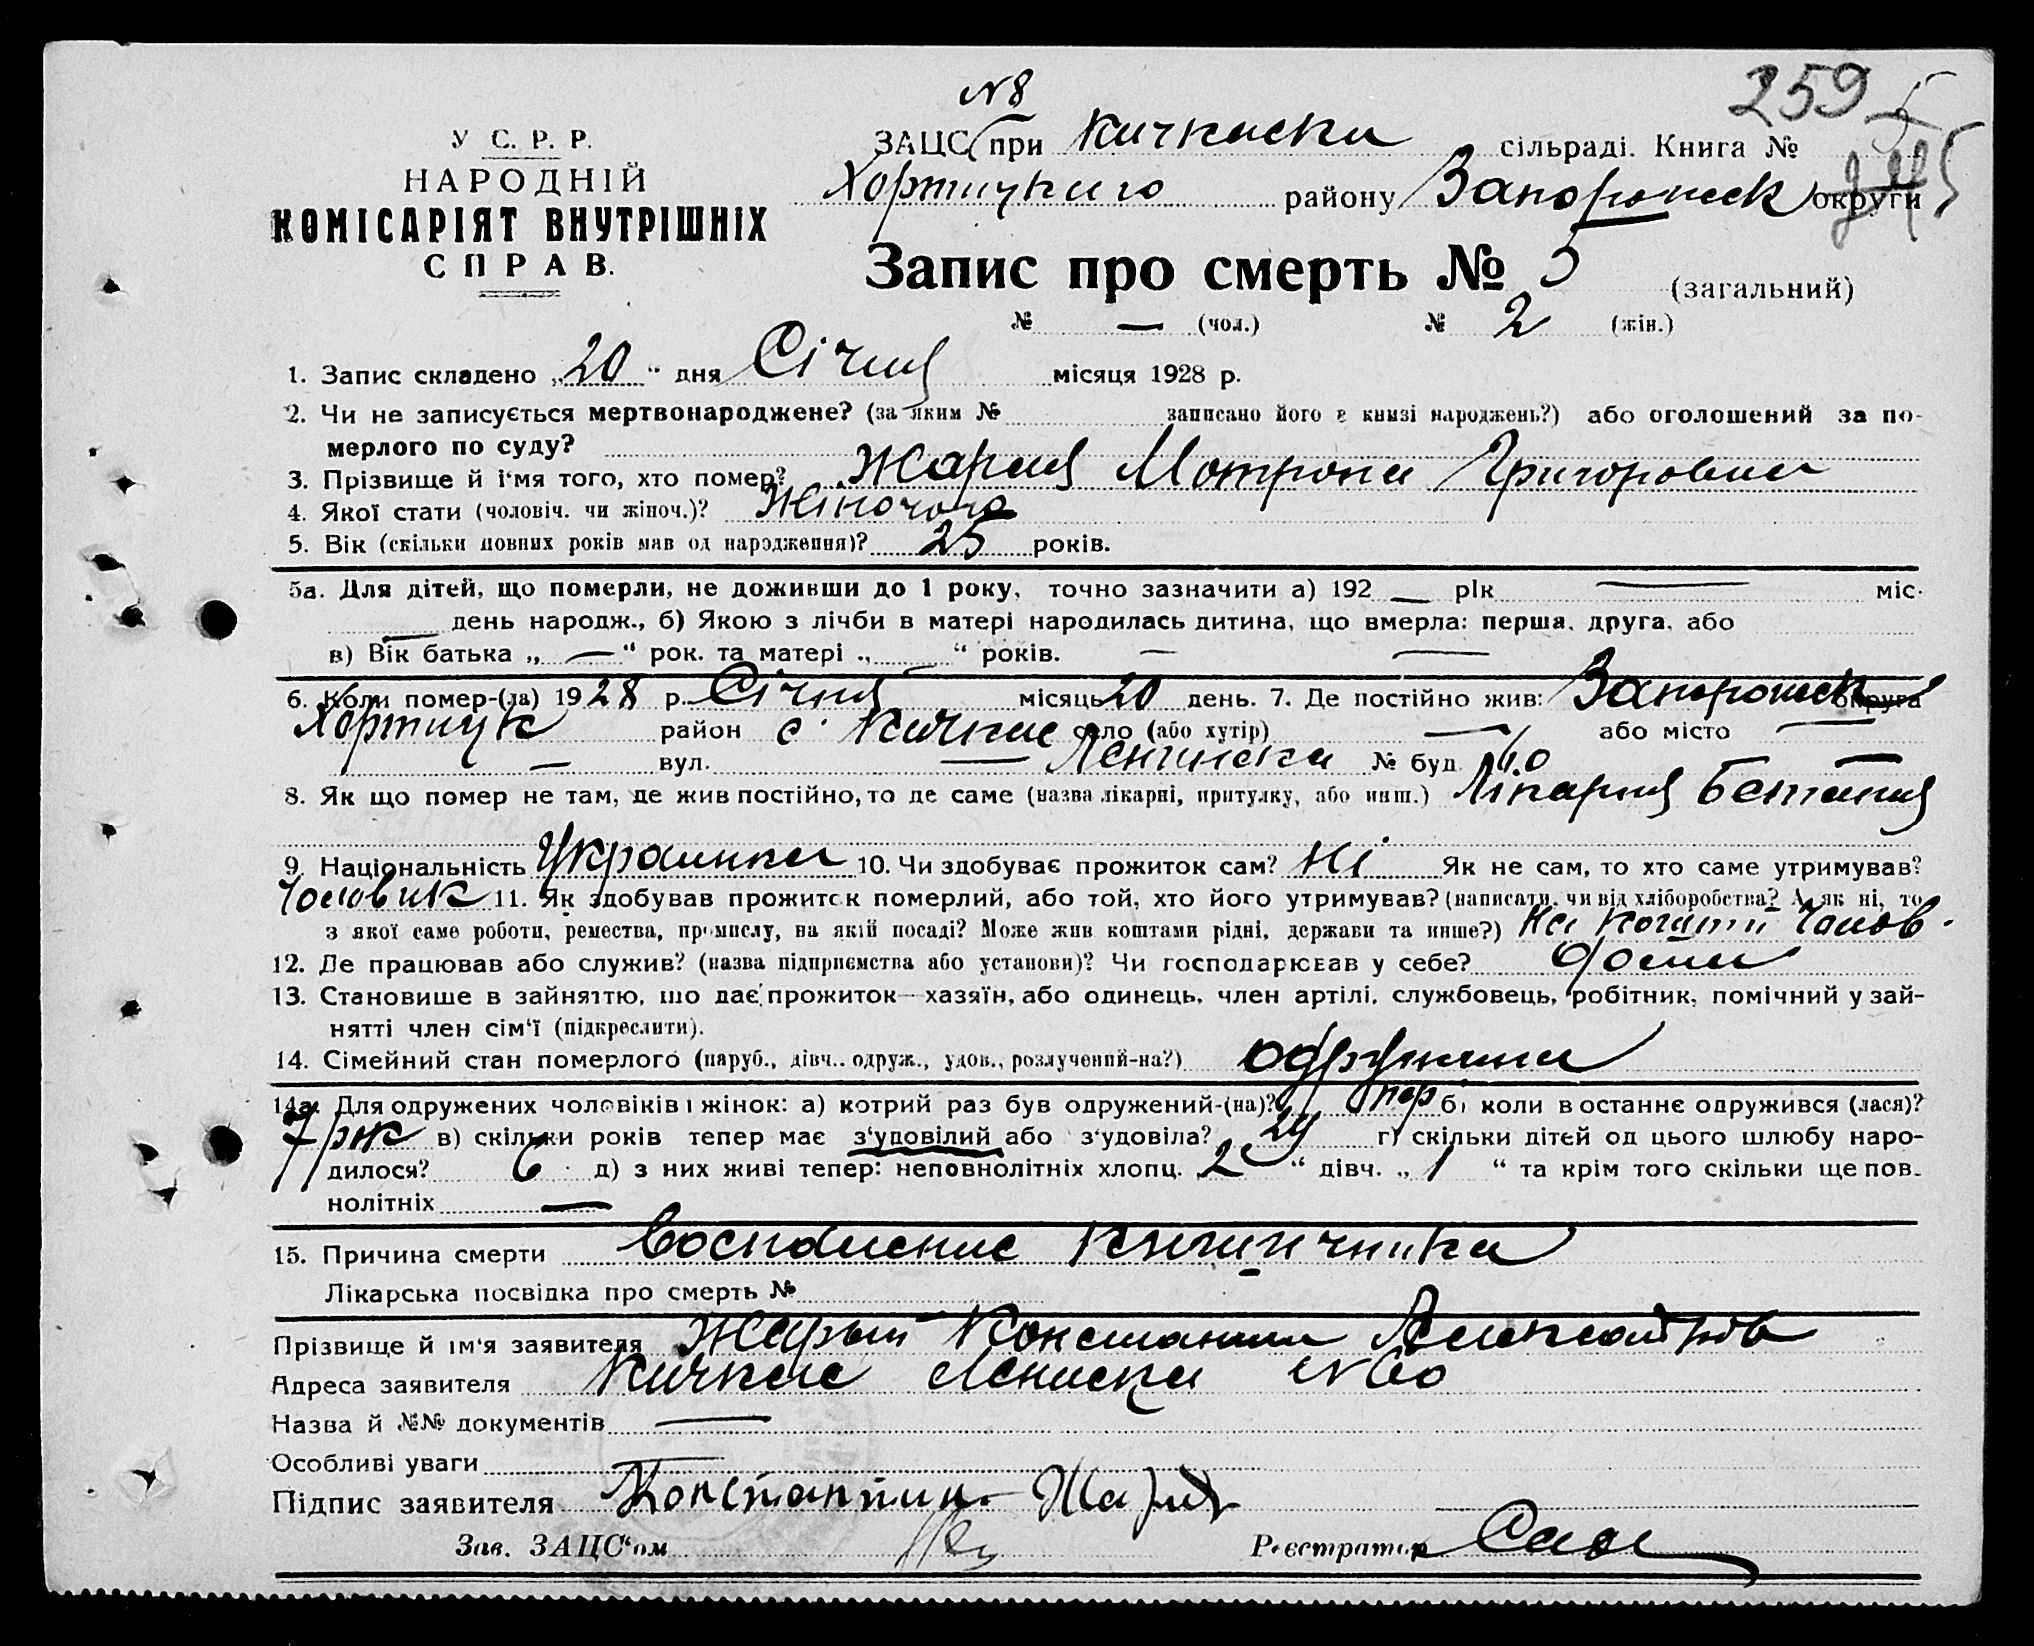 №8
259
У С. Р. Р.
НАРОДНІЙ
КОМІСАРІЯТ ВНУТРІШНІХ
СПРАВ.
ЗАЦС при Кичкаска сільраді. Книга №
Хортицького району Запорожск округи
Запис про смерть № 5 (загальний)
№ — (чол.) № 2 (жін.)
1. Запис складено „20“ дня Січня місяця 1928 р.
2. Чи не записується мертвонароджене? (за яким № записано його в книзі народжень?) або оголошений за по-
мерлого по суду?
3. Прізвище й ім‘я того, хто помер? Жарая Мотрона Григоровна
4. Якої стати (чоловіч. чи жіноч.)? Жіночого
5. Вік (скільки повних років мав од народження)? 25 років.
5а. Для дітей, що померли, не доживши до 1 року, точно зазначити а) 192 — рік — міс.
— день народж., б) Якою з лічби в матері народилась дитина, що вмерла: перша, друга, або
в) Вік батька „ — “ рок. та матері „ — “ років. — —
6. Коли помер-(ла) 1928 р. Січня місяць 20 день. 7. Де постійно жив: Запорожск округа
Хортицк район с. Кичкас село (або хутір) — або місто —
— вул. — Ленинска № буд. 60 —
8. Як що помер не там, де жив постійно, то де саме (назва лікарні, притулку, або инш.) Лікарня Бетания
9. Національність Украинка 10. Чи здобуває прожиток сам? Ні Як не сам, то хто саме утримував?
Чоловик 11. Як здобував прожиток померлий, або той, хто його утримував? (написати, чи від хліборобства? А як ні, то
з якої саме роботи, ремества, промислу, на якій посаді? Може жив коштами рідні, держави та инше?) На кошти чолов.
12. Де працював або служив? (назва підприємства або установи)? Чи господарював у себе? Дома
13. Становише в зайняттю, що дає прожиток—хазяїн, або одинець, член артілі, службовець, робітник, помічний у зай-
нятті член сім‘ї (підкреслити).
14. Сімейний стан померлого (паруб., дівч., одруж., удов., розлучений-на?) одружина
14а. Для одружених чоловіків і жінок: а) котрий раз був одружений-(на)? пер б) коли в останнє одружився (лася)?
7 рік в) скільки років тепер має з‘удовілий або з‘удовіла? 29 г) скільки дітей од цього шлюбу наро-
дилося? 6 д) з них живі тепер: неповнолітніх хлопц. 2 “ дівч. „ 1 “ та крім того скільки ще пов-
нолітніх —
15. Причина смерти Воспаление
Лікарська посвідка про смерть №
Прізвище й ім‘я заявителя Жарый Константин Александров
Адреса заявителя Кичкас Лениска № 60
Назва й №№ документів —
Особливі уваги —
Підпис заявителя Константин Жарий
Зав. ЗАЦС‘ом
Реєстратор